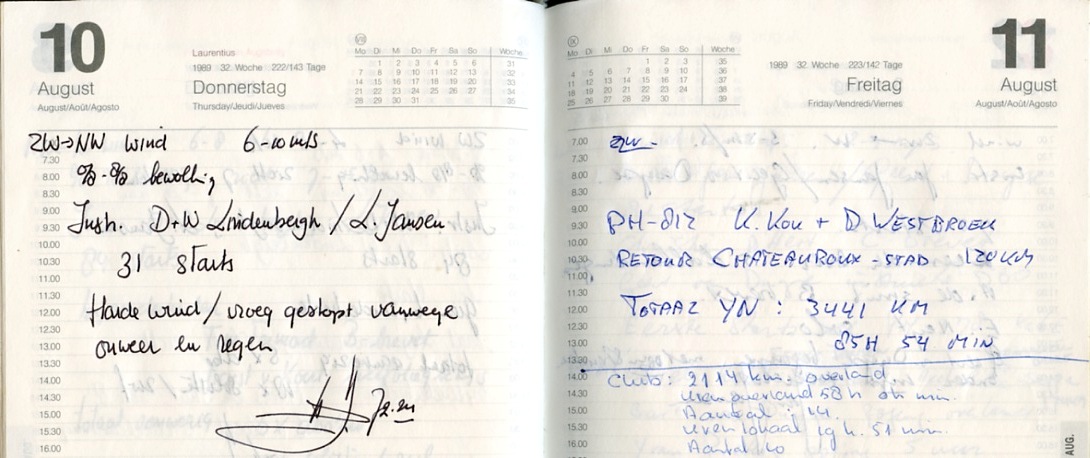 10
August
August/Août/Agosto
Laurentius
1989 32. Woche 222/143 Tage
Donnerstag
Thursday/Jeudi/Jueves
VIII
Mo Di Mi Do Fr Sa So Woche
1 2 3 4 5 6 31
7 8 9 10 11 12 13 32
14 15 16 17 18 19 20 33
21 22 23 24 25 26 27 34
28 29 30 31 35
ZW→NW wind 6-10 m/s
7.30
8.00 bewolking
8.30
9.00
9.30 Instr. D+W Lindenbergh / L. Jansen
10.00
10.30 31 starts
11.00
11.30
12.00 Harde wind / vroeg gestopt vanwege
12.30
13.00 onweer en regen
13.30
14.00
14.30
15.00
15.30
16.00
IX
Mo Di Mi Do Fr Sa So Woche
1 2 3 35
4 5 6 7 8 9 10 36
11 12 13 14 15 16 17 37
18 19 20 21 22 23 24 38
25 26 27 28 29 30 39
1989 32. Woche 223/142 Tage
Freitag
Friday/Vendredi/Viernes
11
August
August/Août/Agosto
7.00 ZW.
7.30
8.00
8.30
9.00
9.30 PH-812 K. KOK + D WESTBROEK
10.00
10.30 RETOUR CHATEAUROUX - STAD 120 KM
11.00
11.30
12.00 TOTAAL YN : 3441 KM
12.30
13.00 85H 54 MIN
13.30
14.00 Club: 2114 km. overland.
14.30 Uren overland 58 h min.
15.00 Aantal : 44.
15.30 uren lokaal 19 h. 51 min.
16.00 Aantal
AUG.